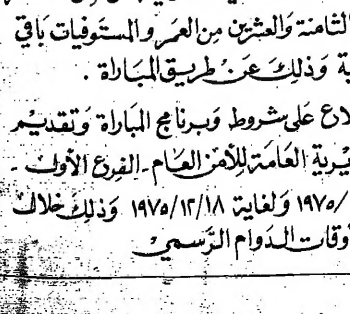 الثامنة والعشرين من العمر والمستوفيات باقي
ية وذلك عن طريق المباراة .
لاع على شروط وبرنامج المباراة وتقديم
يرية العامة للأمن العام - الفرع الأول -
/١٩٧٥ ولغاية ١٩٧٥/١٢/١٨ وذلك خلال
أوقات الدوام الرسمي